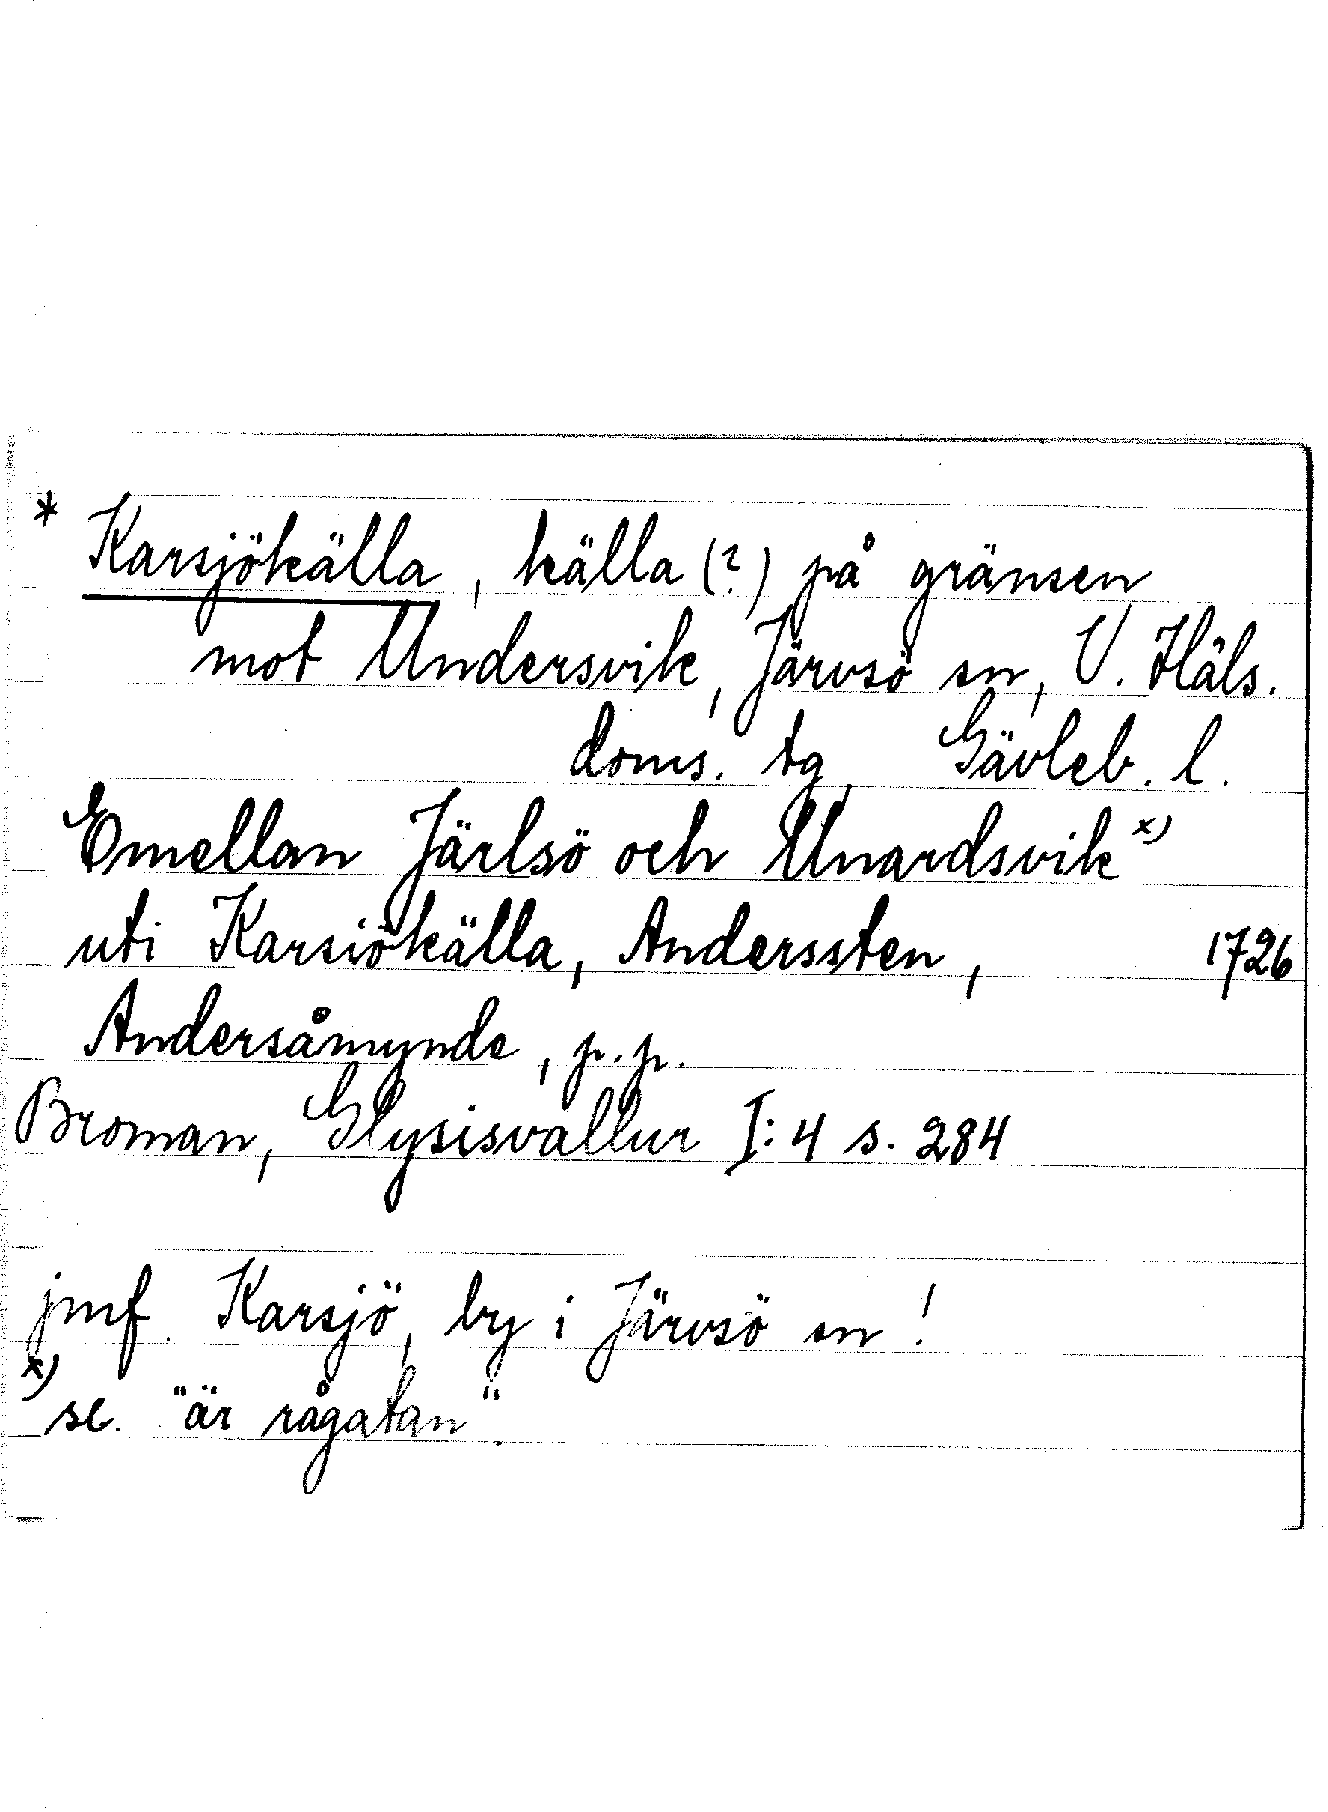 * Karsjökälla, källa (?) på gränsen
mot Undersvik, Järvsö sn, V. Häls.
doms. tg, Gävleb. l.
Emellan Järlsö och Unardsvik x)
uti Karsiökälla, Anderssten, 1726
Andersåmynde, p.p.
Broman, Glysisvallur I:4 s. 284
jmf. Karsjö, by i Järvsö sn!
x) sc. "är rågatan".